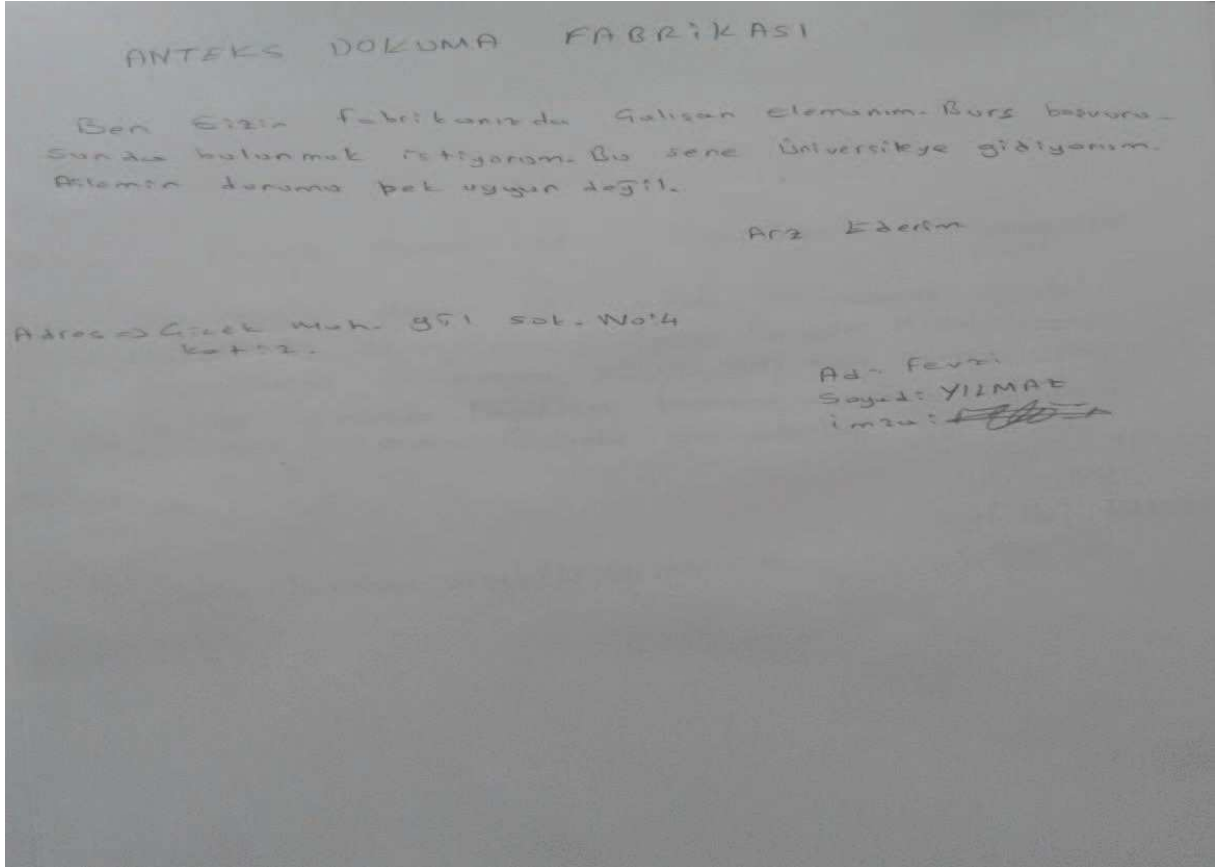 ANTEKS DOKUMA FABRİKASI
Ben Sizin Fabrikanızda Çalışan elemanım. Burs başvuru-
sunda bulunmak istiyorum. Bu sene Üniversiteye gidiyorum.
Ailemin durumu pek uygun değil.
Arz Ederim
Adres => Çiçek Mah. 951 sok. No:4
kat:2.
Ad: Fevzi
Soyad: YILMAZ
imza: